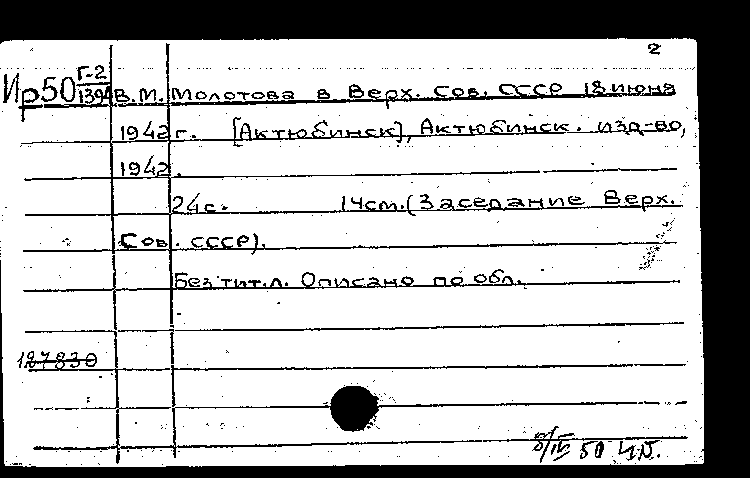 2
Ир50 Г-2
1394 В.М. Молотова в Верх. Сов. СССР 18 июня
1942 г. [Актюбинск], Актюбинск. изд-во,
1942.
24 с. 14 см. (Заседание Верх.
Сов. СССР).
Без тит.л. Описано по обл.
127830
8/IV 50 ЧП.